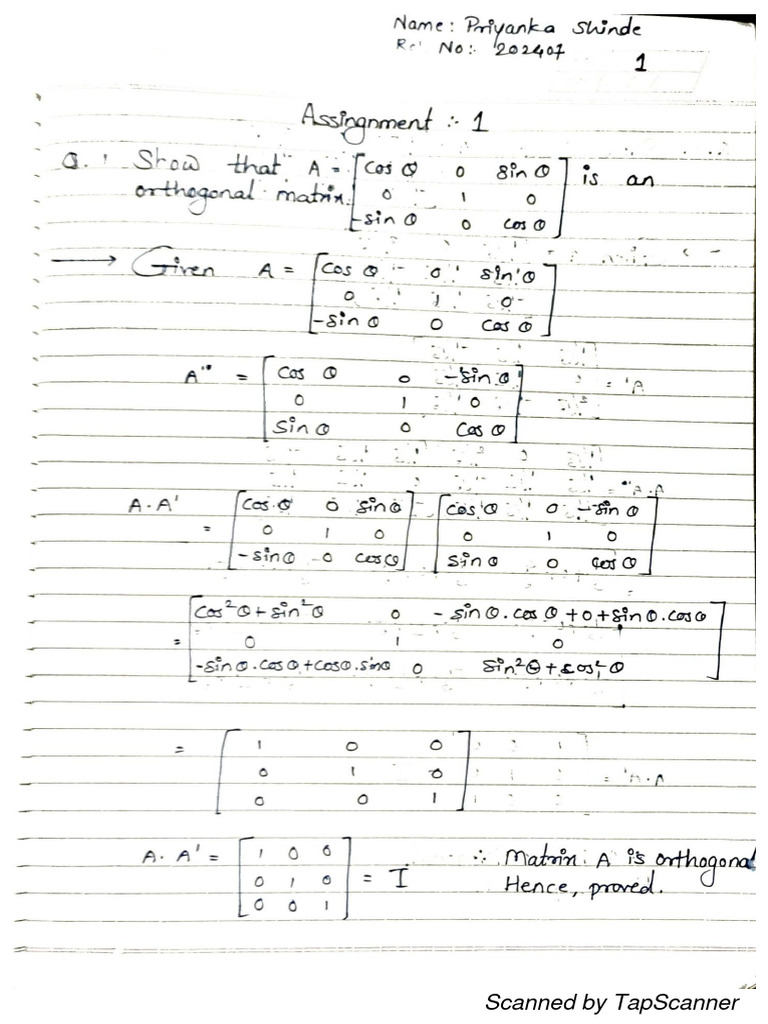 Name: Priyanka Shinde
No:- 202407
1
Assingnment :- 1
Q. 1 Show that A = [cos θ 0 sin θ] is an
orthogonal matrix. [0 1 0]
[-sin θ 0 cos θ]
→ Given A = [cos θ 0 sin θ]
[0 1 0]
[-sin θ 0 cos θ]
A' = [cos θ 0 -sin θ]
[0 1 0]
[sin θ 0 cos θ]
A·A' = [cos θ 0 sin θ] [cos θ 0 -sin θ]
[0 1 0] [0 1 0]
[-sin θ 0 cos θ] [sin θ 0 cos θ]
= [cos²θ+sin²θ 0 -sin θ·cos θ+0+sin θ·cos θ]
[0 1 0]
[-sin θ·cos θ+cos θ·sin θ 0 sin²θ+cos²θ]
= [1 0 0]
[0 1 0]
[0 0 1]
A·A' = [1 0 0] ∴ Matrix A is orthogonal
[0 1 0] = I Hence, proved.
[0 0 1]
Scanned by TapScanner